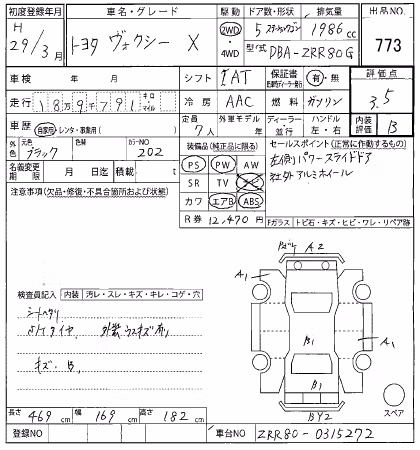 初度登録年月 車名・グレード 駆動 ドア数・形状 排気量 出品NO.
H 29/3月 トヨタ ヴォクシー X 2WD 4WD 5 ステーションワゴン 1986cc 773
型式 DBA-ZRR80G
車検 年 月 シフト IAT 保証書 有・無 評価点
走行 189791 キロ・マイル 冷房 AAC 燃料 ガソリン 3.5
車歴 自家用・レンタ・事業用( ) 定員 7人 外車モデル 年 ディーラー 並行 ハンドル 左・右 内装評価 B
外色 元色 ブラック 色替 カラーNO 202
装備品(純正品に限る) セールスポイント(正常に作動するもの)
PS PW AW 左側パワースライドドア
名義変更期限 月 日迄 積載 t SR TV ナビ 社外アルミホイール
注意事項(欠品・修復・不具合箇所および状態) カワ エアB ABS
R券 12,470円 Fガラス トビ石・キズ・ヒビ・ワレ・リペア跡
A2
A1
検査員記入 内装 汚レ・スレ・キズ・キレ・コゲ・穴
シートヘタリ
外装ウスキズ有り
B1
A1
キズ.B.
B1
BY2
スペア
長さ 469cm 幅 169cm 高さ 182cm
登録NO 車台NO ZRR80-0315272